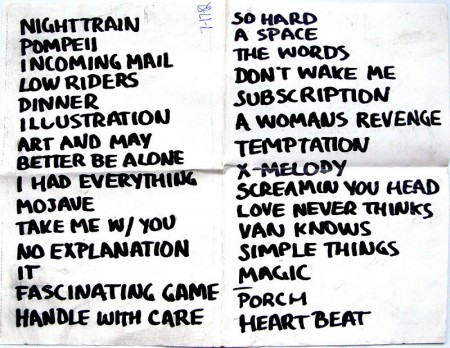 NIGHTTRAIN
POMPEII
INCOMING MAIL
LOW RIDERS
DINNER
ILLUSTRATION
ART AND MAY
BETTER BE ALONE
I HAD EVERYTHING
MOJAVE
TAKE ME W/ YOU
NO EXPLANATION
IT
FASCINATING GAME
HANDLE WITH CARE
7-17-86
SO HARD
A SPACE
THE WORDS
DON'T WAKE ME
SUBSCRIPTION
A WOMANS REVENGE
TEMPTATION
X-MELODY
SCREAMIN YOU HEAD
LOVE NEVER THINKS
VAN KNOWS
SIMPLE THINGS
MAGIC
PORCH
HEARTBEAT